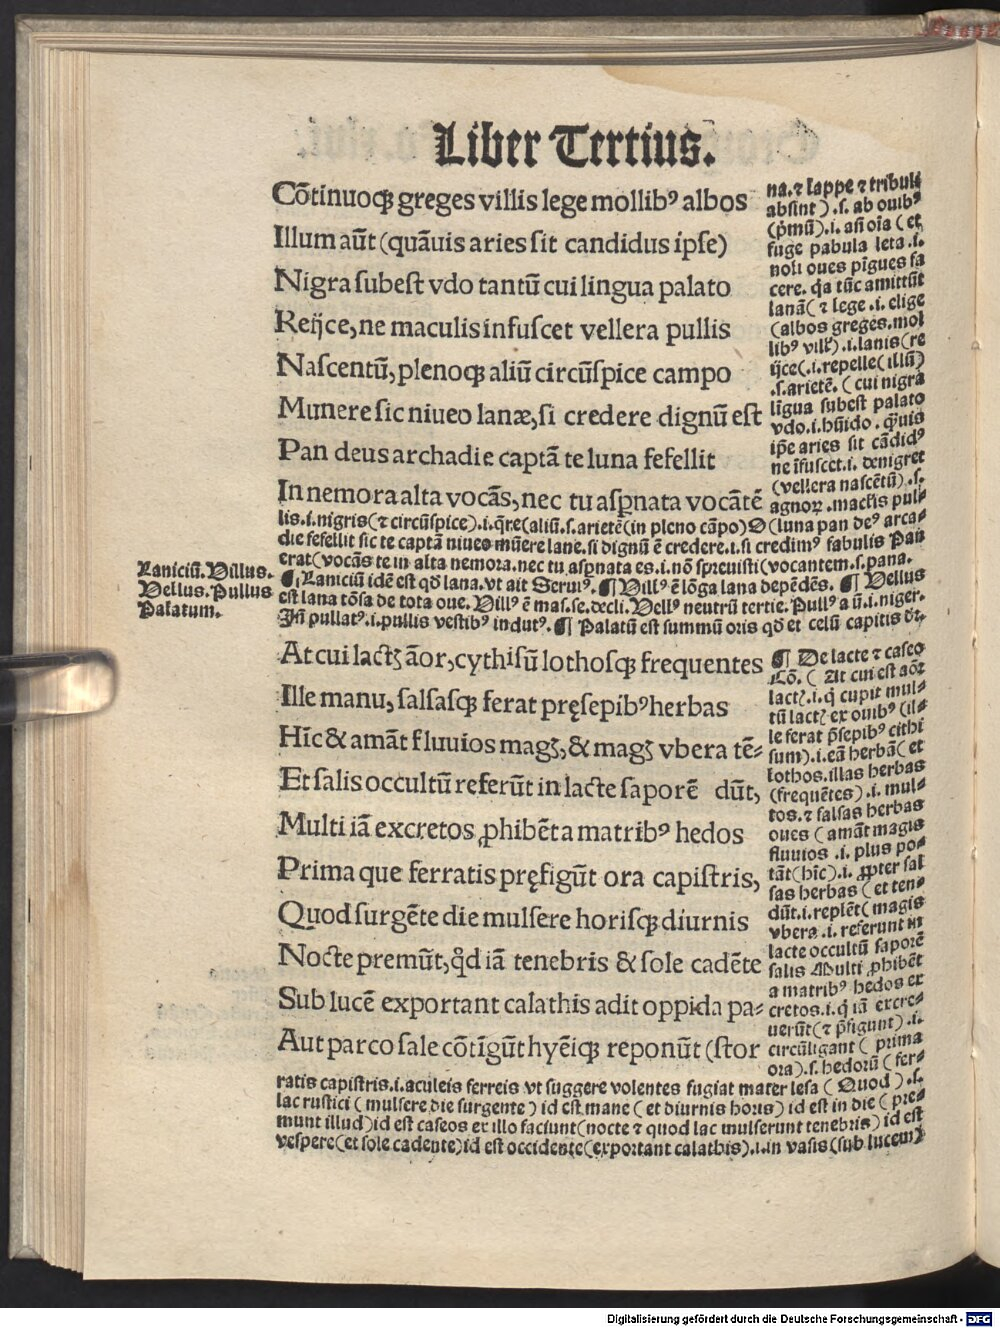 Liber Tertius.
Cōtinuoqꝫ greges villis lege mollibꝰ albos
Illum aūt (quāuis aries sit candidus ipse)
Nigra subest vdo tantū cui lingua palato
Reijce, ne maculis infuscet vellera pullis
Nascentū, plenoqꝫ aliū circūspice campo
Munere sic niueo lanæ, si credere dignū est
Pan deus archadie captā te luna fefellit
In nemora alta vocās, nec tu aspnata vocātē
na. ⁊ lappe ⁊ tribuli
absint ) .s. ab ouibꝰ
(pͥmū).i. asi oīa ( et
fuge pabula leta .i.
noli oues pīgues fa
cere. qa tūc amittūt
lanā( ⁊ lege .i. elige
(albos greges. mol
libꝰ vill̓).i. lanis(re
ijce(.i. repelle( illū)
.s. arietē. ( cui nigra
līgua subest palato
vdo .i. hūido. quīs
ipē aries sit cādidꝰ
ne īfuscet .i. denigret
(vellera nascētū) .s.
agnoꝝ .maclis pul⸗
lis .i. nigris(⁊ circūspice).i. qͥre(aliū .s. arietē(in pleno cāpo)O (luna pan deꝰ arca⸗
die fefellit sic te captā niueo mūere lane. si dignū ē credere .i. si credimꝰ fabulis Pan
erat(vocās te in alta nemora. nec tu aspnata es .i. nō spreuisti(vocantem .s. pana.
¶ Laniciū idē est qd̄ lana. vt ait Seruiꝰ. ¶ Villꝰ ē lōga lana depēdēs. ¶ Vellus
est lana tōsa de tota oue. Villꝰ ē mas. se. decli. Vellꝰ neutrū tertie. Pullꝰ a ū .i. niger.
Jn̄ pullatꝰ .i. pullis vestibꝰ indutꝰ. ¶ Palatū est summū oris qd̄ et celū capitis dr̄.
Laniciū. Villus.
Vellus. Pullus
Palatum.
At cui lactꝫ āor, cythisū lothosqꝫ frequentes
Ille manu, salsasqꝫ ferat pręsepibꝰ herbas
Hīc & amāt fluuios magꝫ, & magꝫ vbera tē⸗
Et salis occultū referūt in lacte saporē dūt,
Multi iā excretos ꝓhibēt a matribꝰ hedos
Prima que ferratis pręfigūt ora capistris,
Quod surgēte die mulsere horisqꝫ diurnis
Nocte premūt, qd̄ iā tenebris & sole cadēte
Sub lucē exportant calathis adit oppida pa⸗
Aut parco sale cōtīgūt hyēiqꝫ reponūt (stor
¶ De lacte ⁊ caseo
Cō. ( At cui est aōꝛ
lact? .i. q cupit mul⸗
tū lact? ex ouibꝰ (il⸗
le ferat p̄sepibꝰ cithi
sum).i. eā herbā( et
lothos. illas herbas
(frequētes) .i. mul⸗
tos. ⁊ salsas herbas
oues ( amāt magis
fluuios .i. plus po⸗
tāt(hīc).i. ꝓpter sal
sas herbas ( et ten⸗
dūt .i. replēt( magis
vbera .i. referunt in
lacte occultū saporē
salis Multi ꝓhibēt
a matribꝰ hedos ex
cretos .i. q iā excre⸗
uerūt(⁊ p̄figunt) .i.
circūligant ( prima
ora) .s. hedorū ( fer⸗
ratis capistris .i. aculeis ferreis vt suggere volentes fugiat mater lesa ( Quod ) .s.
lac rustici ( mulsere die surgente ) id est mane ( et diurnis horis) id est in die ( pre⸗
munt illud) id est caseos ex illo faciunt(nocte ⁊ quod lac mulserunt tenebris) id est
vespere(et sole cadente)id est occidente(exportant calathis).i. in vasis(sub lucem)
Digitalisierung gefördert durch die Deutsche Forschungsgemeinschaft - DFG